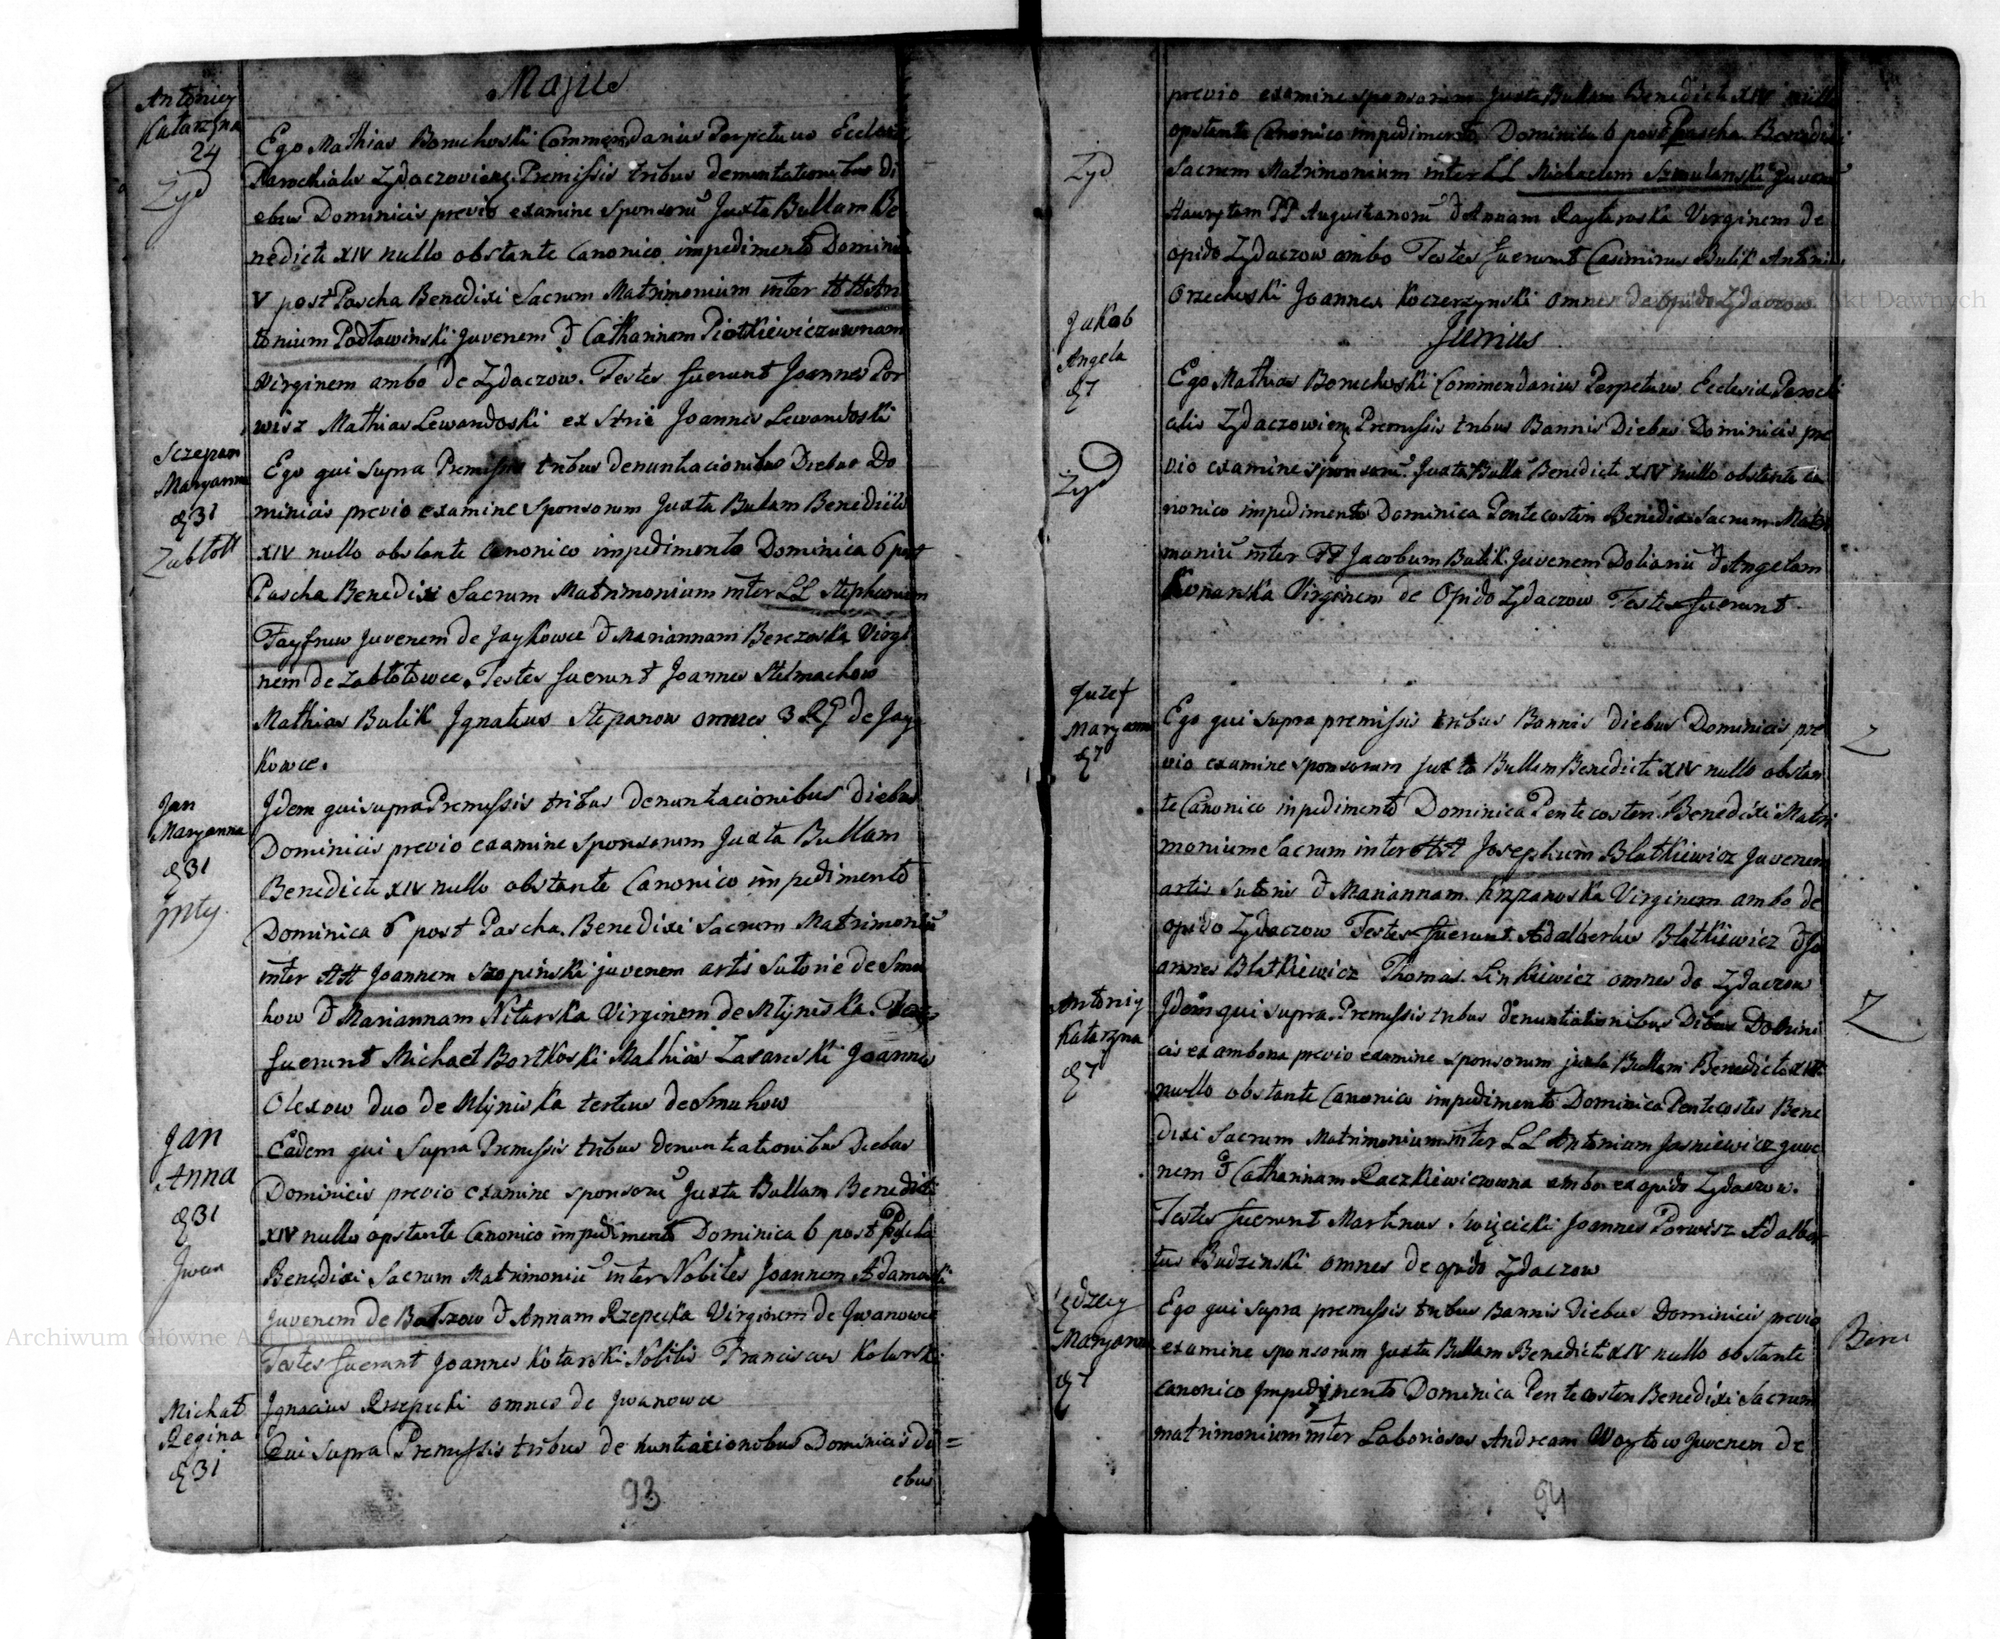 Majus
Antoniy
Katarzyna
24
Zyd
Ego Mathias Boruchoski Commendarius Perpetuus Eccles
Parochialis Zydaczoviens Premissis tribus denuntationibus di
ebus Dominicis previo examine sponsorũ Juxta Bullam Be
nedicti XIV nullo obstante Canonico impedimento Dominica
V post Pascha Benedixi Sacrum Matrimonium inter HH An
tonium Podtowinski juvenem & Catharinam Piotkiewiczownam
Virginem ambo de Zydaczow. Testes fuerunt Joannes Por
wisz Mathias Lewandoski ex Strie Joannes Lewandoski
Sczepan
Maryanna
& 31
Zabłott
Ego qui supra Premissis tribus denuntiacionibus Diebus Do
minicis previo examine sponsorum Juxta Bulam Benedicti
XIV nullo obstante Canonico impedimento Dominica 6 post
Pascha Benedixi Sacrum Matrimonium inter LL Stephanum
Juvenem de Jaykowce & Mariannam Berezoska Virgi
nem de Zabłotowce. Testes fuerunt Joannes Stelmachow
Mathias Bulik Ignatius Stepanow omnes 3 RG de Jay
kowce.
Jan
Maryanna
& 31
Mły
Idem qui supra Premissis tribus denuntiacionibus diebus
Dominicis previo examine sponsorum Juxta Bullam
Benedicti XIV nullo obstante Canonico impedimento
Dominica 6 post Pascha. Benedixi Sacrum Matrimoniũ
inter HH Joannem Szopiński juvenem artis Sutorie de Smu
how & Mariannam Nitarska Virginem de Młyniska. Testes
fuerunt Michael Bortkoski Mathias Lazareski Joannes
Olexow duo de Młyniska tertius de Smuhow
Jan
Anna
& 31
Jwan
Eadem qui Supra Premissis tribus denuntiationibus Diebus
Dominicis previo examine sponsorũ Juxta Bullam Benedicti
XIV nullo opstante Canonico impedimento Dominica 6 post Pascha
Benedixi Sacrum Matrimoniũ inter Nobiles Joannem Adamski
Juvenem de & Annam Rzepecka Virginem de Jwanowce
Testes fuerunt Joannes Kotarski Nobilis Franciscus Kotarski
Ignacius Rzepecki omnes de Jwanowce
Michał
Regina
& 31
Qui supra Premissis tribus denuntiacionobus Dominicis Di=
ebus
93
previo examine sponsorum Juxta Bullam Benedicti XIV nullo
opstante Canonico impedimento Dominica 6 post Pascha Benedixi
Zyd
Sacrum Matrimonium inter LL Michaelem Szmulanski Juvenẽ
PP Augustianorũ & Annam Raytaroska Virginem de
opido Zydaczow ambo Testes fuerunt Casimirus Bulik Antonius
Orzechoski Joannes Koczerzynski omnes de opido Zydaczow
Junius
Jakob
Angela
& 7
Zyd
Ego Mathias Boruchoski Commendarius Perpetuus Ecclesia Parochi
alis Zydaczowiens Premissis tribus Bannis Diebus Dominicis pre
vio examine sponsorũ Juxta Bullã Benedicti XIV nullo obstante ca
nonico impedimento Dominica Pentecosten Benedixi Sacrum Matri
moniũ inter PP Jacobum Bulik Juvenem Doliariũ & Angelam
Konarska Virginem de Opido Zydaczow Testes fuerunt.
Juzef
Maryanna
& 7
Ego qui supra premissis tribus Bannis diebus Dominicis pre
vio examine sponsorum juxta Bullam Benedicti XIV nullo obstan
te Canonico inpedimento Dominica Pentecosten Benedixi Matri
monium Sacrum inter HH Josephum Blatkiewicz Juvenem
artis Sutoris & Mariannam Krzpanoska Virginem ambo de
opido Zydaczow Testes fuerunt Adalbertus Blatkiewicz & Jo
annes Blatkiewicz Thomas Linkiewicz omnes de Zydaczow
Z
Antoniy
Katarzyna
& 7
Idem qui supra Premissis tribus denuntiationibus Diebus Domini
cis ex ambona previo examine sponsorum juxta Bullam Benedicti XIV
nullo obstante Canonico impedimento Dominica Pentecostes Bene
dixi Sacrum Matrimonium inter LL Antonium Jasniewicz juve
nem & Catharinam Raczkiewiczowna ambo ex opido Zydaczow.
Testes fuerunt Martinus Swięcicki Joannes Porwisz Adalber
tus Budzinski omnes de opido Zydaczow
Z
Maryanna
& 7
Ego qui supra premissis tribus Bannis Diebus Dominicis previo
examine sponsorum Juxta Bullam Benedicti XIV nullo obstante
canonico Jmpedimento Dominica Pentecosten Benedixi Sacrum
matrimonium inter Laboriosos Andream Woytow Juvenem de
Bere
94
Archiwum Główne Akt Dawnych
Akt Dawnych